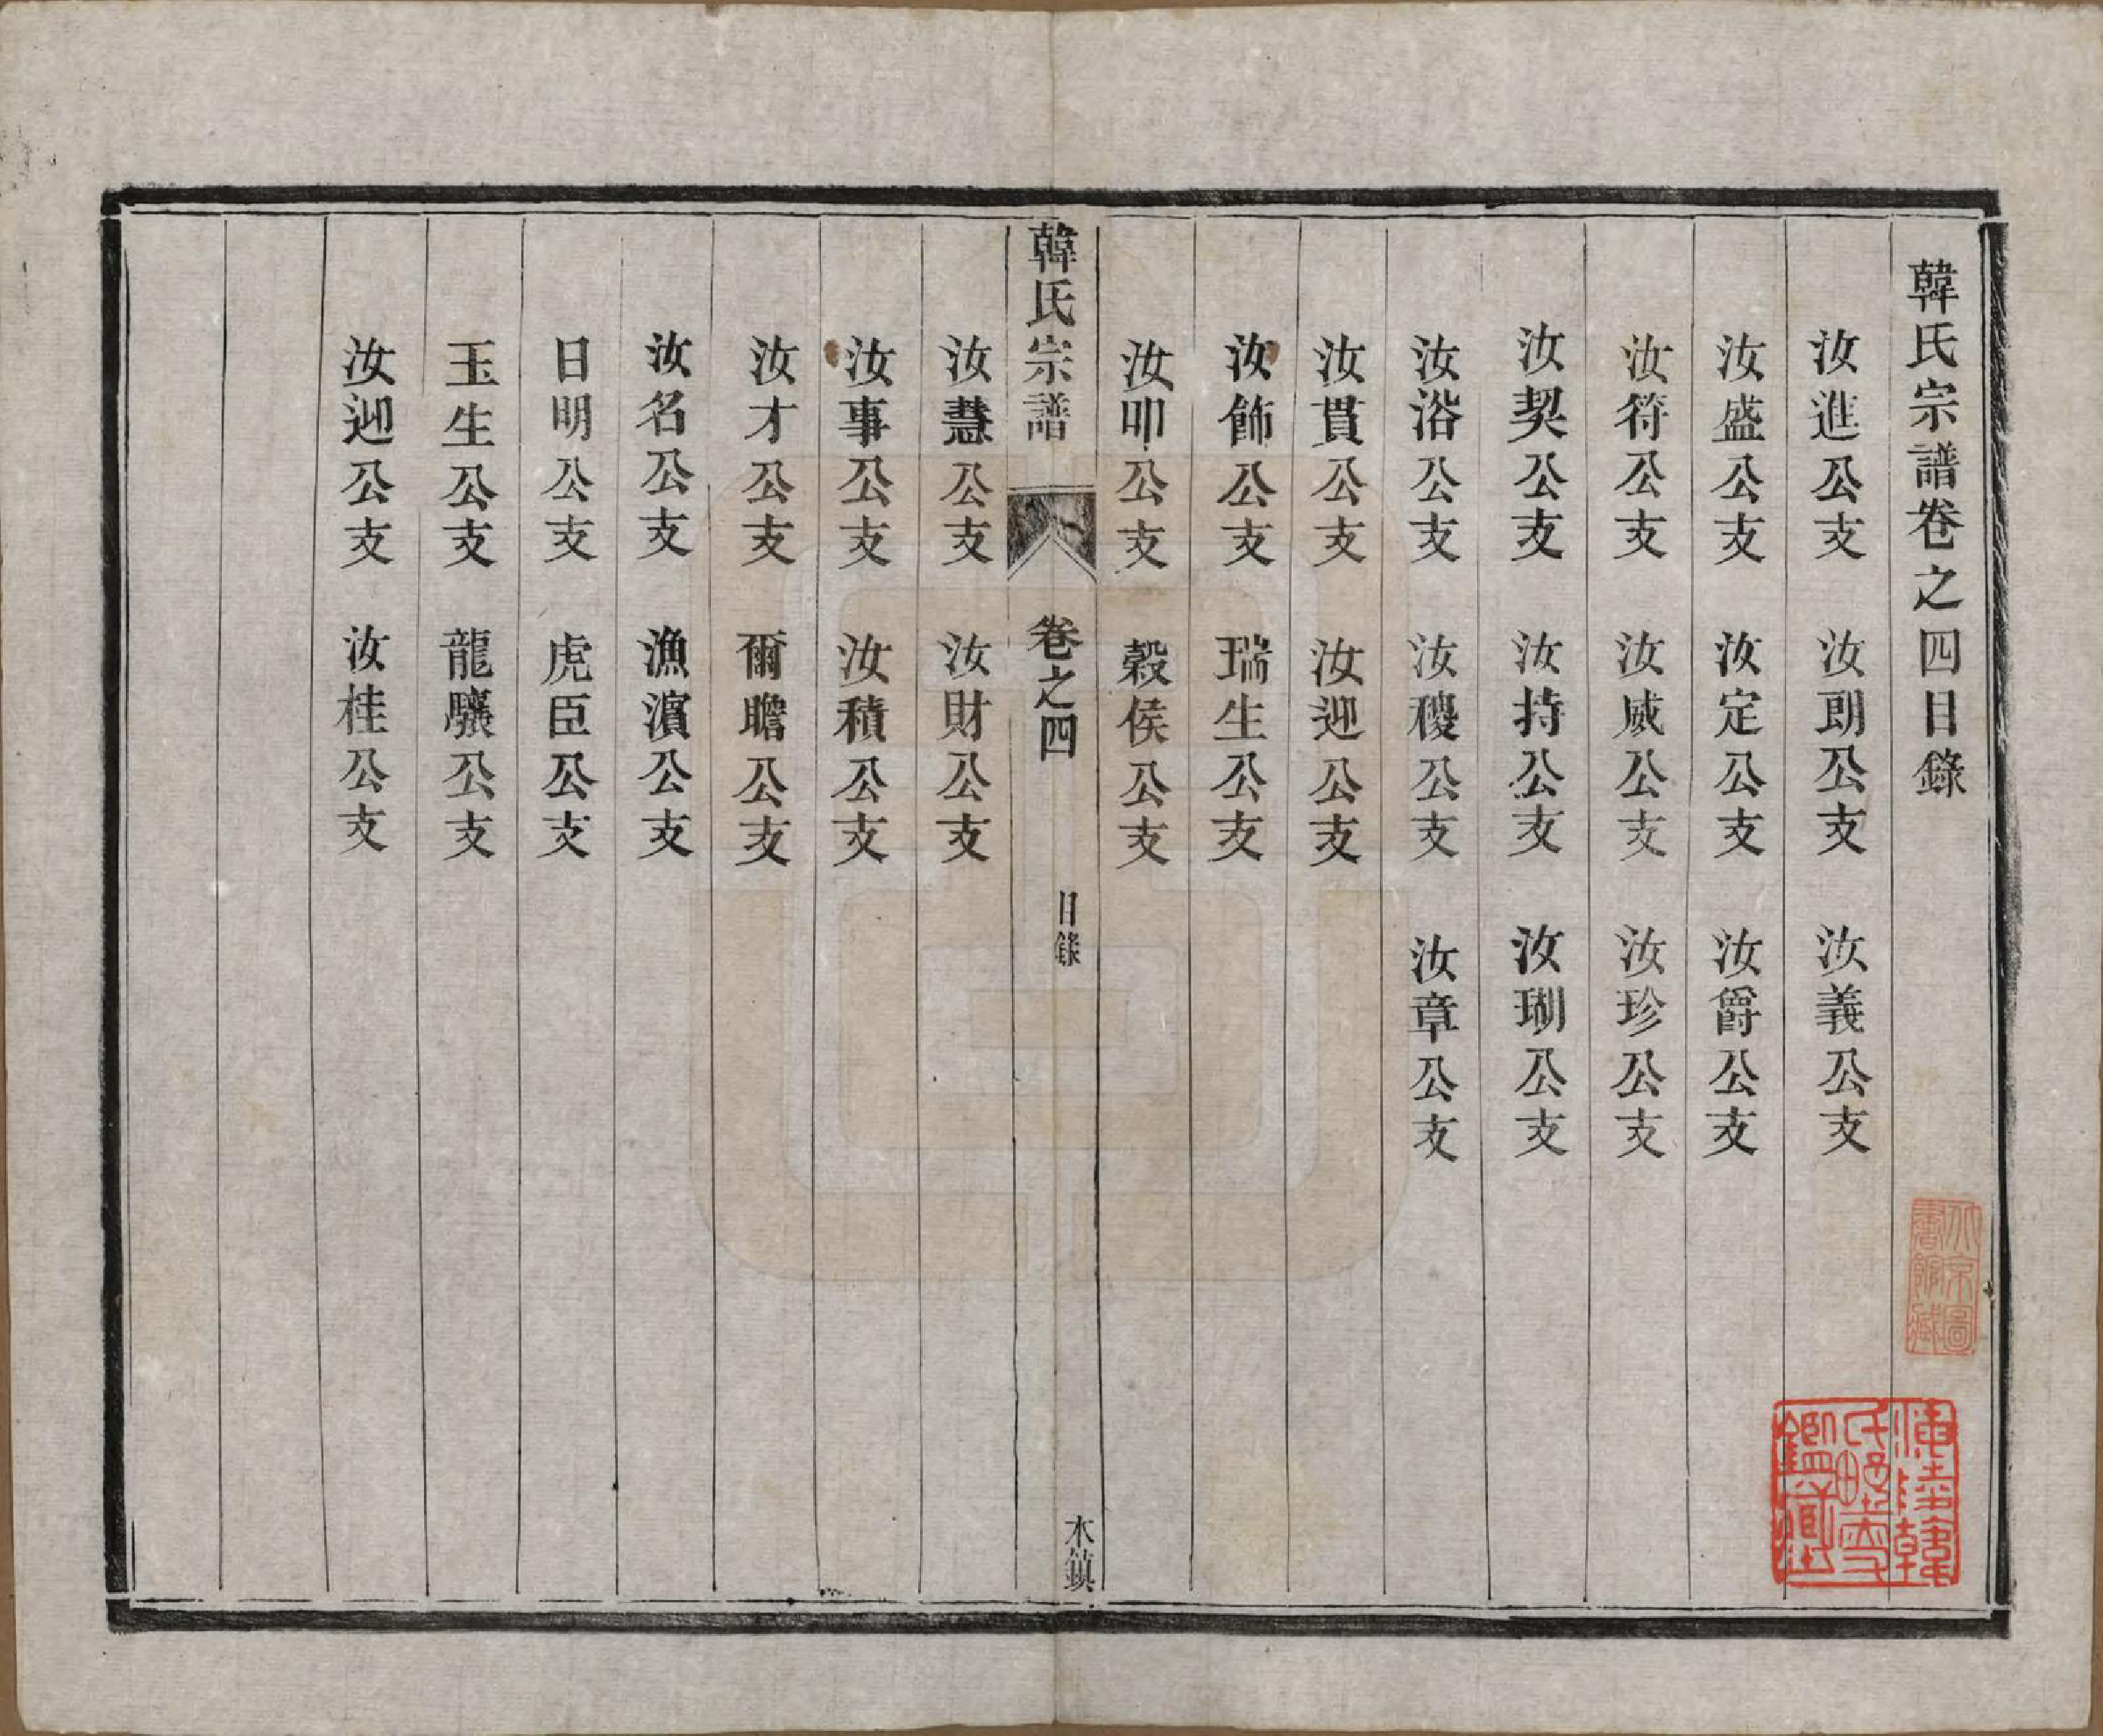 韓氏宗譜卷之四目錄
汝進公支 汝朗公支 汝義公支
汝盛公支 汝定公支 汝爵公支
汝符公支 汝威公支 汝珍公支
汝契公支 汝持公支 汝瑚公支
汝浴公支 汝稷公支 汝章公支
汝貫公支 汝迎公支
汝飾公支 瑞生公支
汝卬公支 穀侯公支
韓氏宗譜 卷之四 目錄 木鎮
汝慧公支 汝財公支
汝事公支 汝積公支
汝才公支 爾瞻公支
汝名公支 漁濱公支
日明公支 虎臣公支
玉生公支 龍驤公支
汝迎公支 汝桂公支
北京圖書館藏